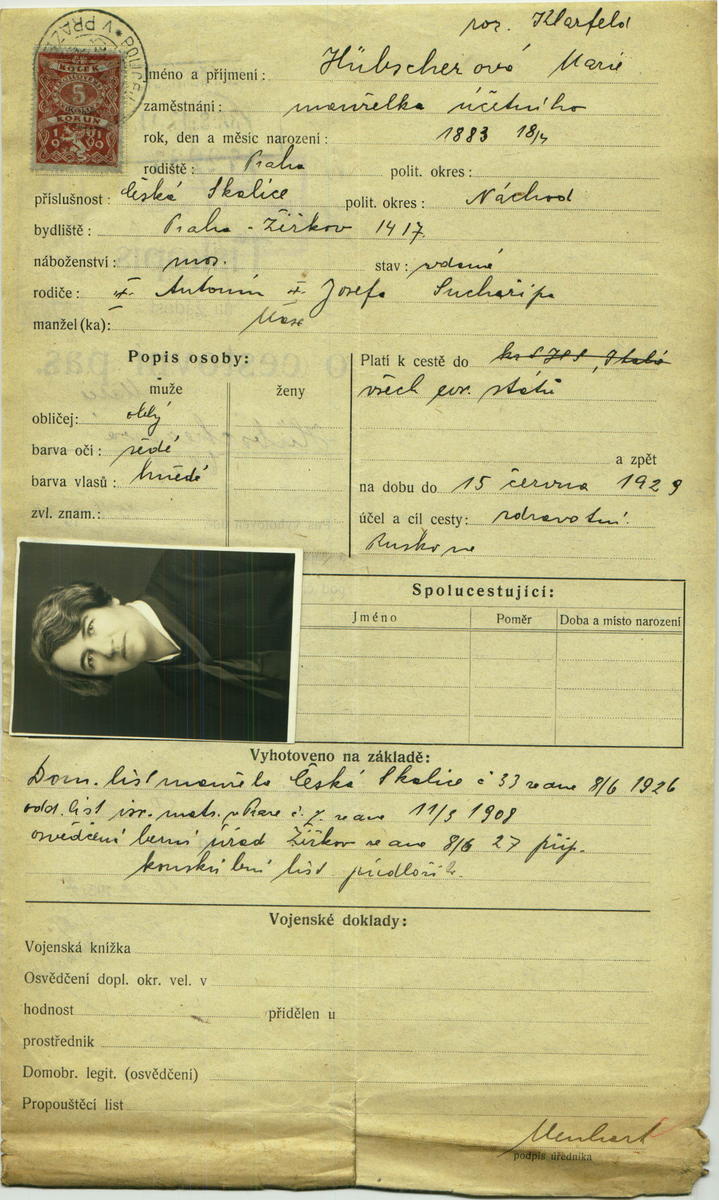 roz. Klarfeld
KOLEK
5
KORUN
Jméno a příjmení: Hübscherová Marie
zaměstnání: manželka účetního
rok, den a měsíc narození: 1883 18/4
rodiště: Praha polit. okres:
příslušnost: Česká Skalice polit. okres: Náchod
bydliště: Praha - Žižkov 1417
náboženství: mos. stav: vdaná
rodiče: Antonín Josefa
manžel (ka):
Popis osoby: Platí k cestě do
muže ženy všech evr. států
obličej: oblý
barva očí: šedé a zpět
barva vlasů: hnědé na dobu do 15 června 1929
zvl. znam.: účel a cíl cesty: zdravotní
Spolucestující:
Jméno Poměr Doba a místo narození
Vyhotoveno na základě:
Dom. list manžela Česká Skalice č 33 ze dne 8/6 1926
odd. list isr. mat. v Praze č. 7. ze dne 11/3 1908
osvědčení berní úřad Žižkov ze dne 8/6 27 příp.
konskribční list předloží
Vojenské doklady:
Vojenská knížka
Osvědčení dopl. okr. vel. v
hodnost přidělen u
prostředník
Domobr. legit. (osvědčení)
Propouštěcí list
podpis úředníka